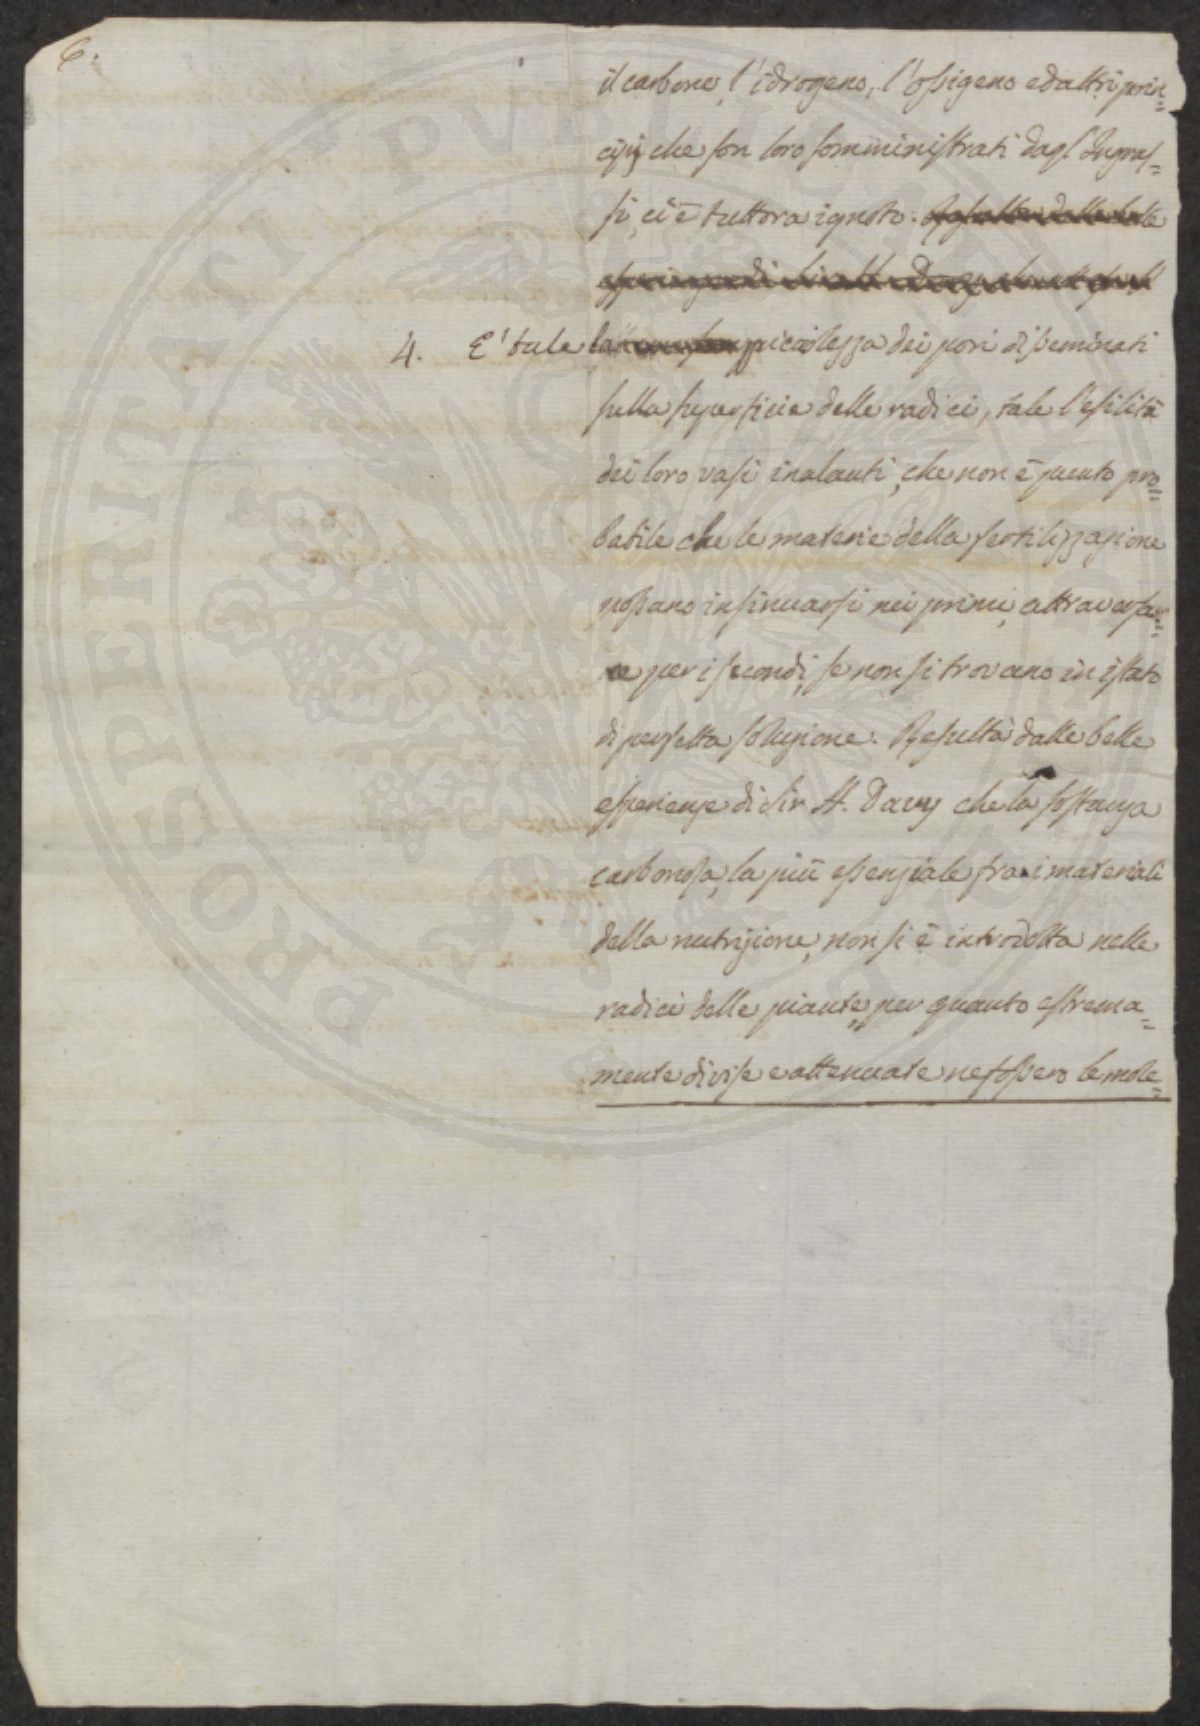 6.
il carbone, l'idrogeno, l'ossigeno ed altri prin=
cipj che son loro somministrati dagl'Ingras=
si, ci è tuttora ignoto. Resulta dalle belle
esperienze di Sir H. Davy che
4. E' tale la piccolezza dei pori diseminati
sulla superficie delle radici, tale l'esilità
dei loro vasi inalanti, che non è punto pro=
babile che le materie della fertilizzazione
possano insinuarsi nei primi, attraversa=
re per i secondi, se non si trovano in istato
di perfetta soluzione. Resulta dalle belle
esperienze di Sir H. Davy che la sostanza
carbonosa, la più essenziale fra i materiali
della nutrizione, non si è introdotta nelle
radici delle piante, per quanto estrema=
mente divise e attenuate ne fossero le mole=
PROSPERITATI PUBLICAE